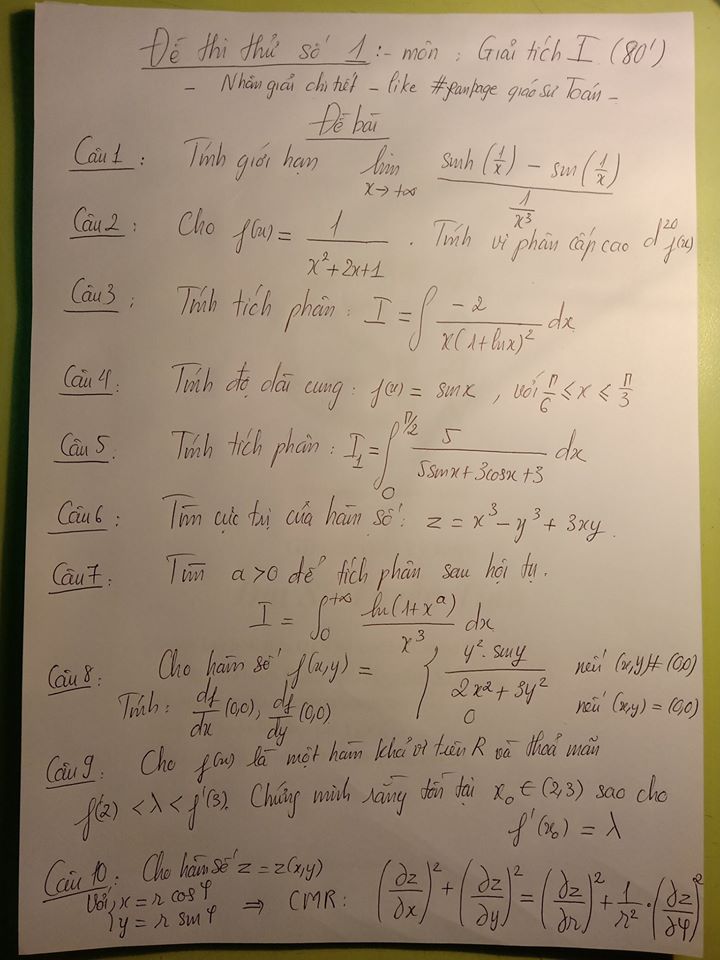 Đề thi thử số 1 :- môn : Giải tích I (80')
- Nhận giải chi tiết - like #fanpage giáo sư Toán -
Đề bài
Câu 1 : Tính giới hạn lim x→+∞ (sinh(1/x) - sin(1/x)) / (1/x³)
Câu 2 : Cho f(x) = 1/(x²+2x+1) . Tính vi phân cấp cao d²⁰f(x)
Câu 3 : Tính tích phân : I = ∫ -2/(x(1+lnx)²) dx
Câu 4 : Tính độ dài cung : f(x) = sinx , với π/6 ≤ x ≤ π/3
Câu 5 : Tính tích phân : I₁ = ∫₀^(π/2) 5/(5sinx+3cosx+3) dx
Câu 6 : Tìm cực trị của hàm số : z = x³ - y³ + 3xy.
Câu 7 : Tìm a>0 để tích phân sau hội tụ.
I = ∫₀^(+∞) ln(1+xᵃ)/x³ dx
Câu 8 : Cho hàm số f(x,y) = { y².siny/(2x²+3y²) nếu (x,y)≠(0,0)
Tính : df/dx (0,0), df/dy (0,0) 0 nếu (x,y) = (0,0)
Câu 9 : Cho f(x) là một hàm khả vi trên R và thoả mãn
f'(2) < λ < f'(3). Chứng minh rằng tồn tại x₀ ∈ (2,3) sao cho
f'(x₀) = λ
Câu 10 : Cho hàm số z = z(x,y)
với { x = r cosφ
y = r sinφ ⇒ CMR : (∂z/∂x)² + (∂z/∂y)² = (∂z/∂r)² + 1/r² . (∂z/∂φ)²